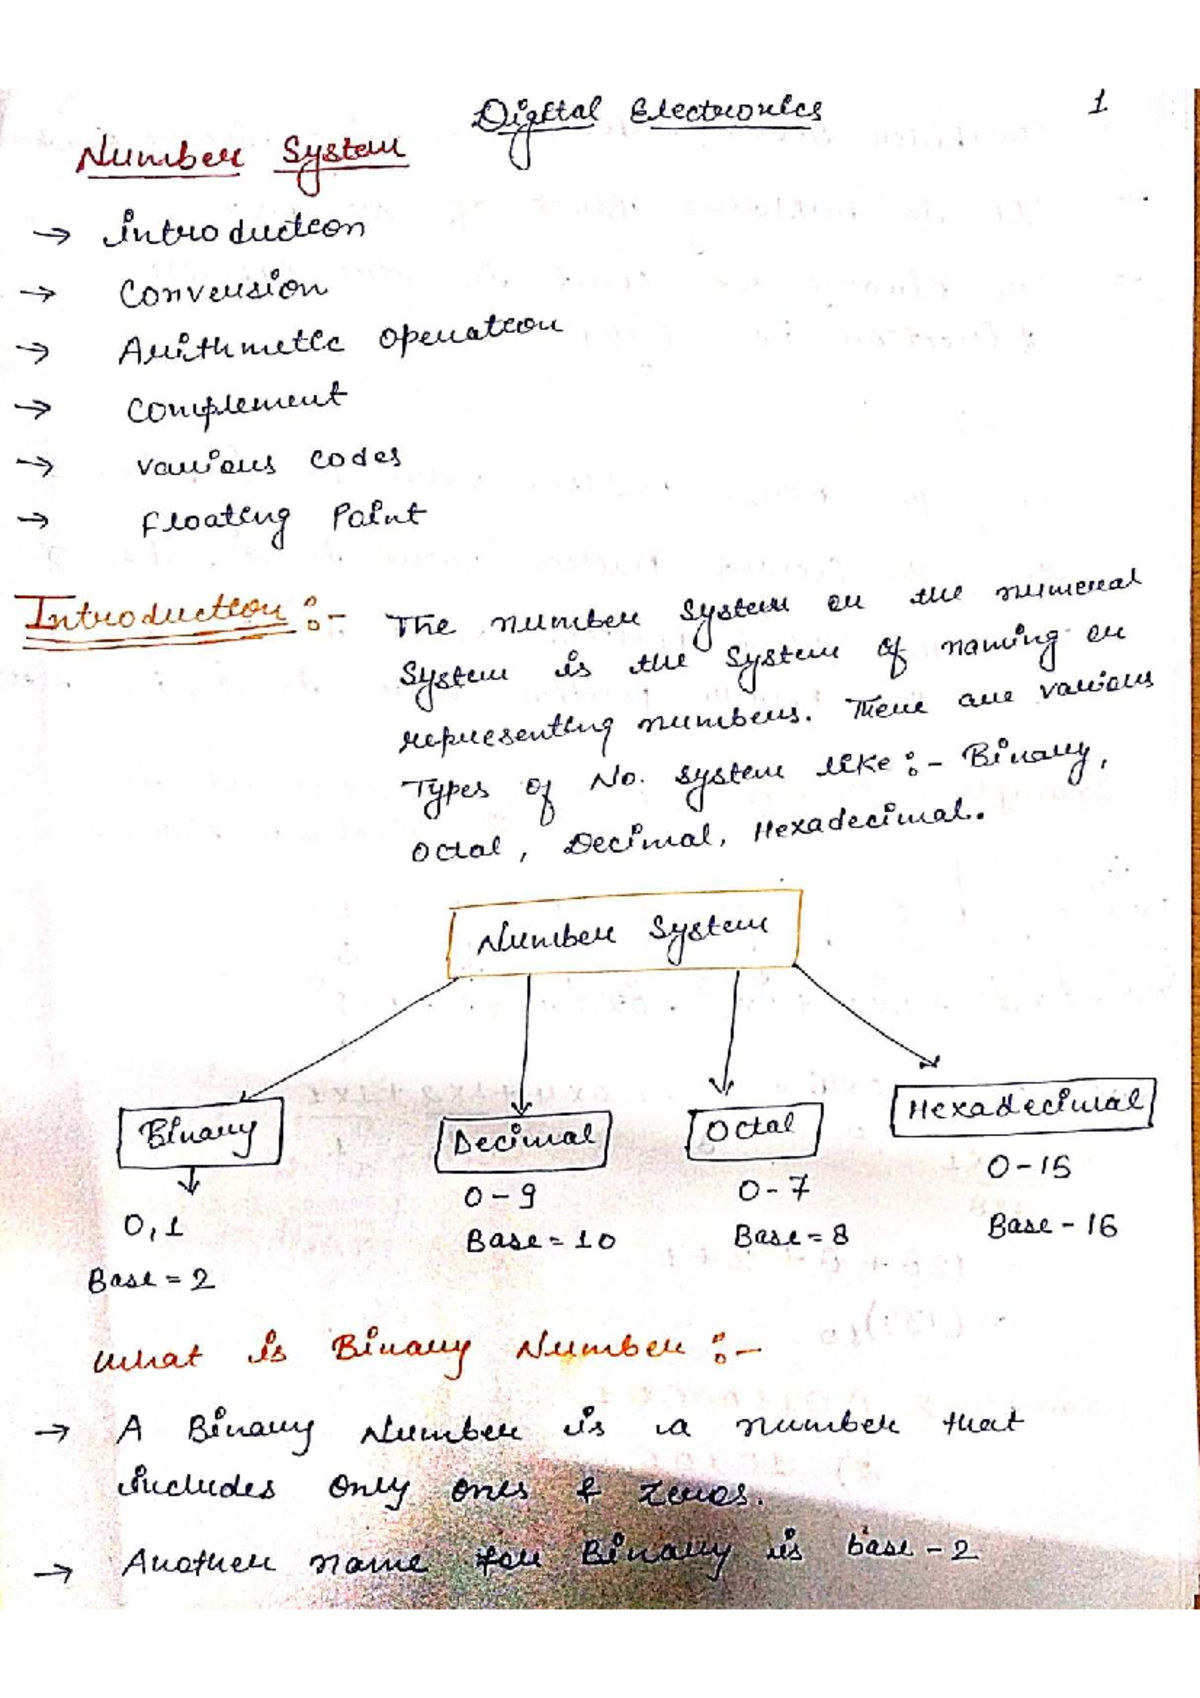 Digital Electronics
1
Number System
→ Introduction
→ Conversion
→ Arithmetic Operation
→ Complement
→ Various Codes
→ Floating Point
Introduction :- The number system or the numeral
System is the System of naming or
representing numbers. There are various
Types of No. system like :- Binary,
Octal, Decimal, Hexadecimal.
Number System
Binary Decimal Octal Hexadecimal
0,1 0-9 0-7 0-15
Base = 2 Base = 10 Base = 8 Base - 16
What is Binary Number :-
→ A Binary Number is a number that
includes only ones & zeros.
→ Another name for Binary is base-2